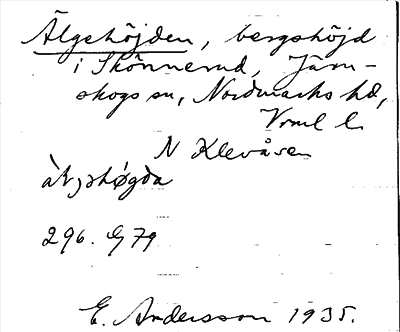 Älgshöjden, bergshöjd
i Skönnerud, Järn-
skogs sn, Nordmarks hd,
Vrml l.
N Klevåsen
296. G 79
E. Andersson 1935.